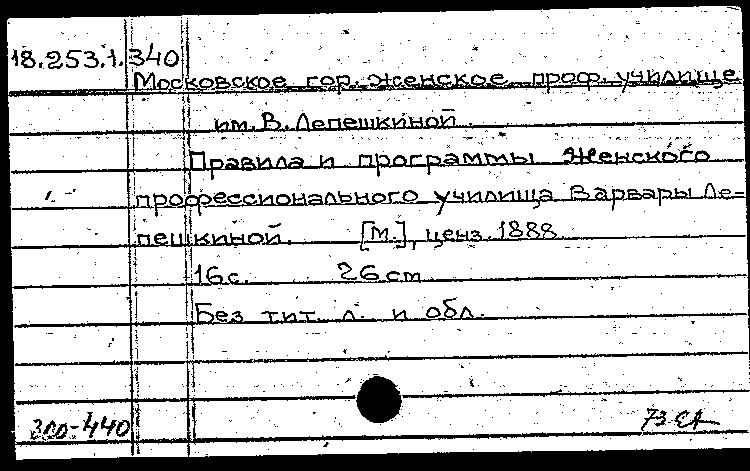 18.253.1.340
Московское гор. женское проф. училище
им. В. Лепешкиной.
Правила и программы Женского
профессионального училища Варвары Ле-
пешкиной. [М.], ценз. 1888
16 с. 26 cm
Без тит. л. и обл.
-440
73